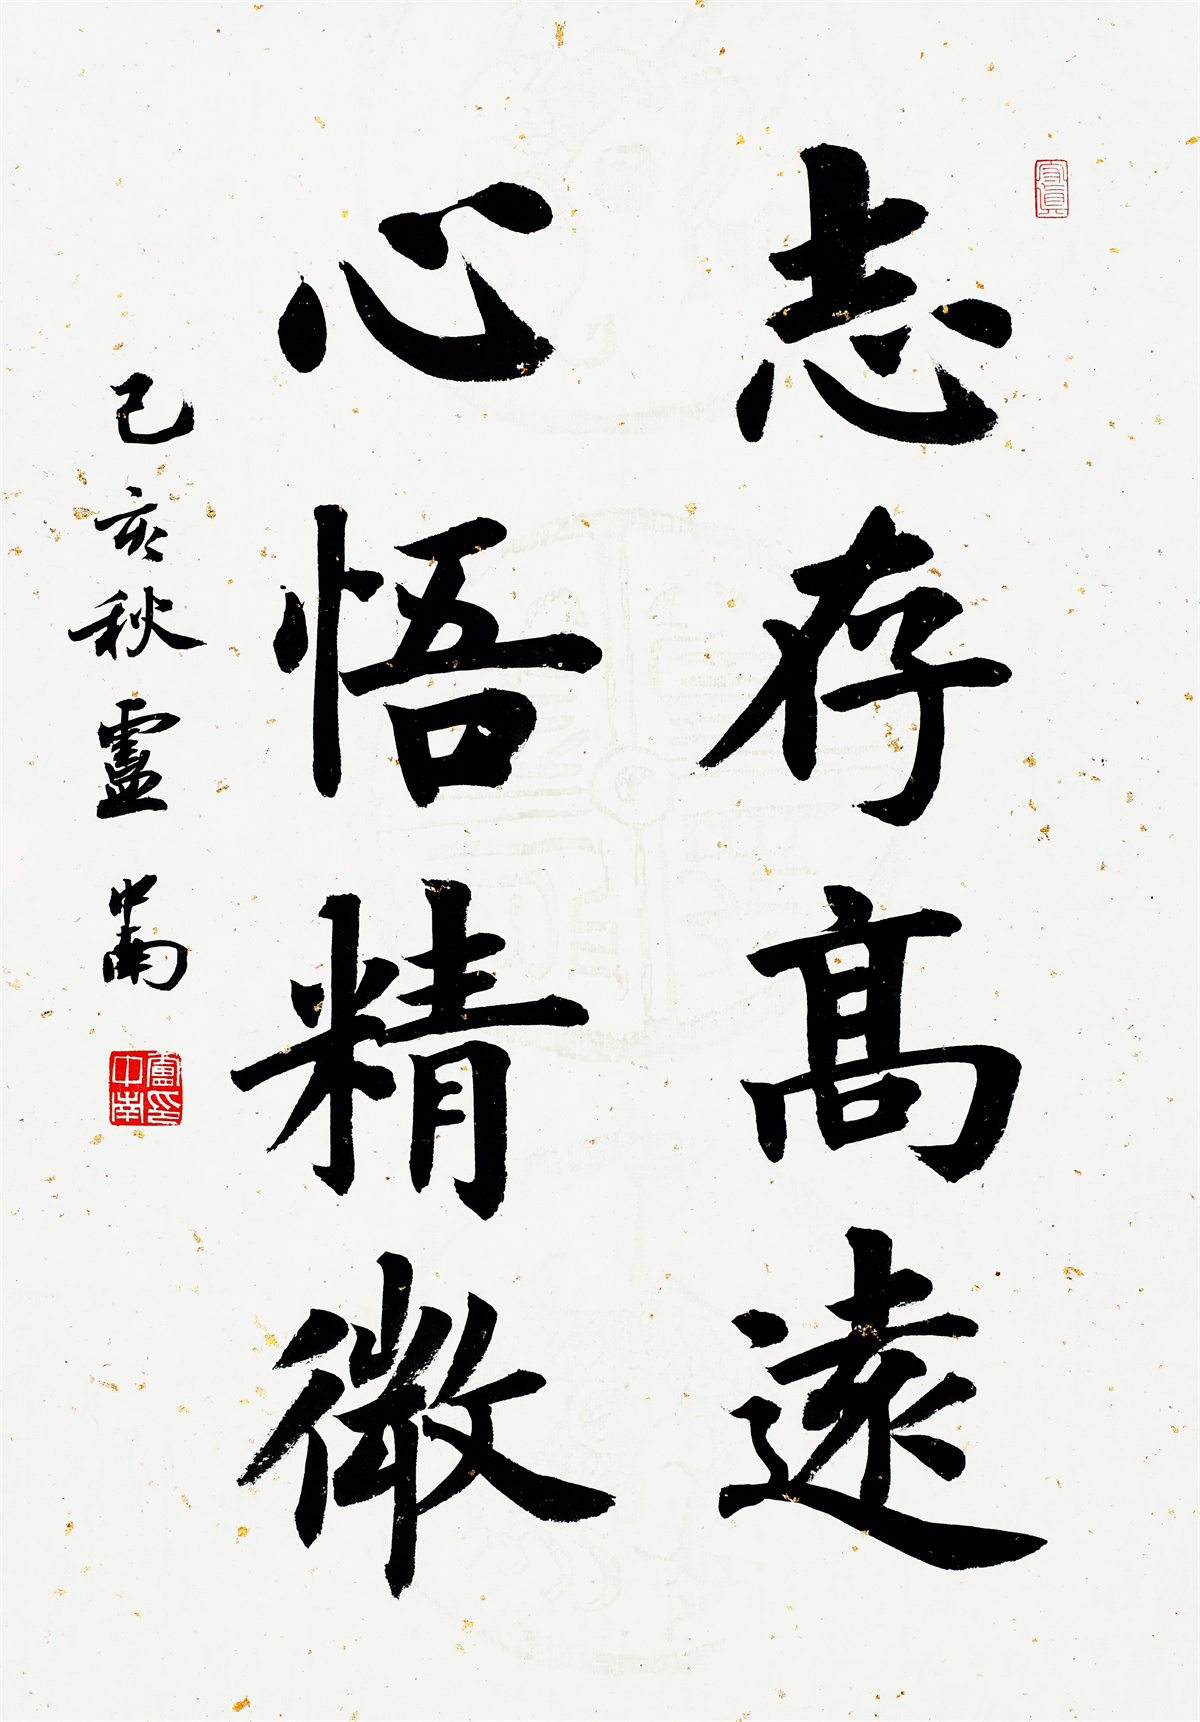 志存高遠
心悟精微
己亥秋盧中南
盧印中南